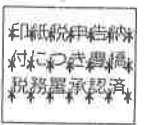 印紙税申告納
付につき豊橋
税務署承認済